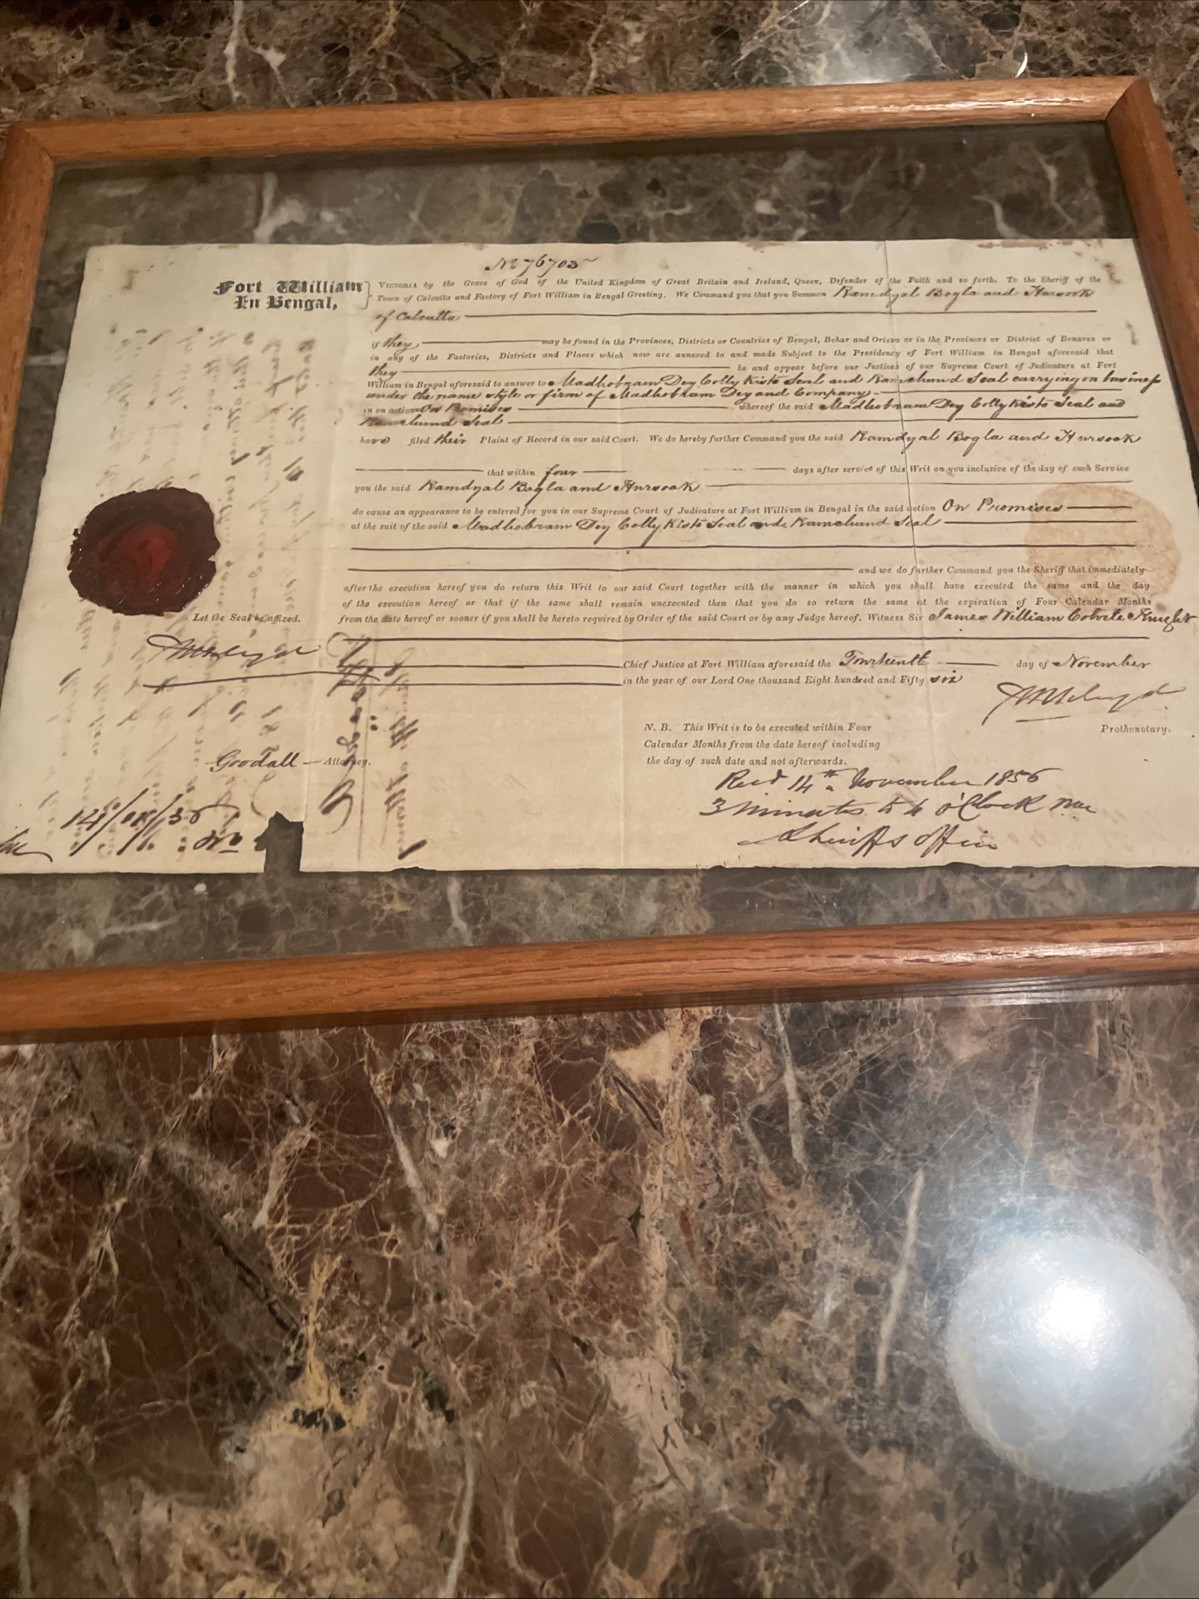 No 76705
Fort William
In Bengal,
VICTORIA by the Grace of God of the United Kingdom of Great Britain and Ireland, Queen, Defender of the Faith and so forth. To the Sheriff of the
Town of Calcutta and Factory of Fort William in Bengal Greeting. We Command you that you Summon Ramdyal Bogla and Hursook
of Calcutta
if they may be found in the Provinces, Districts or Countries of Bengal, Behar and Orissa or in the Provinces or District of Benares or
in any of the Factories, Districts and Places which now are annexed to and made Subject to the Presidency of Fort William in Bengal aforesaid that
they be and appear before our Justices of our Supreme Court of Judicature at Fort
William in Bengal aforesaid to answer to Madhobram Dey Colly Kisto Seal and Ramchund Seal carrying on business
under the name style or firm of Madhobram Dey and Company
in an action On Promises whereof the said Madhobram Dey Colly Kisto Seal and
Ramchund Seal
have filed their Plaint of Record in our said Court. We do hereby further Command you the said Ramdyal Bogla and Hursook
that within four days after service of this Writ on you inclusive of the day of such Service
you the said Ramdyal Bogla and Hursook
do cause an appearance to be entered for you in our Supreme Court of Judicature at Fort William in Bengal in the said action On Promises
at the suit of the said Madhobram Dey Colly Kisto Seal and Ramchund Seal
and we do further Command you the Sheriff that immediately
after the execution hereof you do return this Writ to our said Court together with the manner in which you shall have executed the same and the day
of the execution hereof or that if the same shall remain unexecuted then that you do so return the same at the expiration of Four Calendar Months
from the date hereof or sooner if you shall be hereto required by Order of the said Court or by any Judge hereof. Witness Sir James William Colvile Knight
Let the Seal be affixed.
Chief Justice at Fort William aforesaid the Fourteenth day of November
in the year of our Lord One thousand Eight hundred and Fifty six
Prothonotary.
N. B. This Writ is to be executed within Four
Calendar Months from the date hereof including
the day of such date and not afterwards.
Goodall Attorney.
Recd 14th November 1856
3 minutes to 4 o'Clock
Sheriffs office